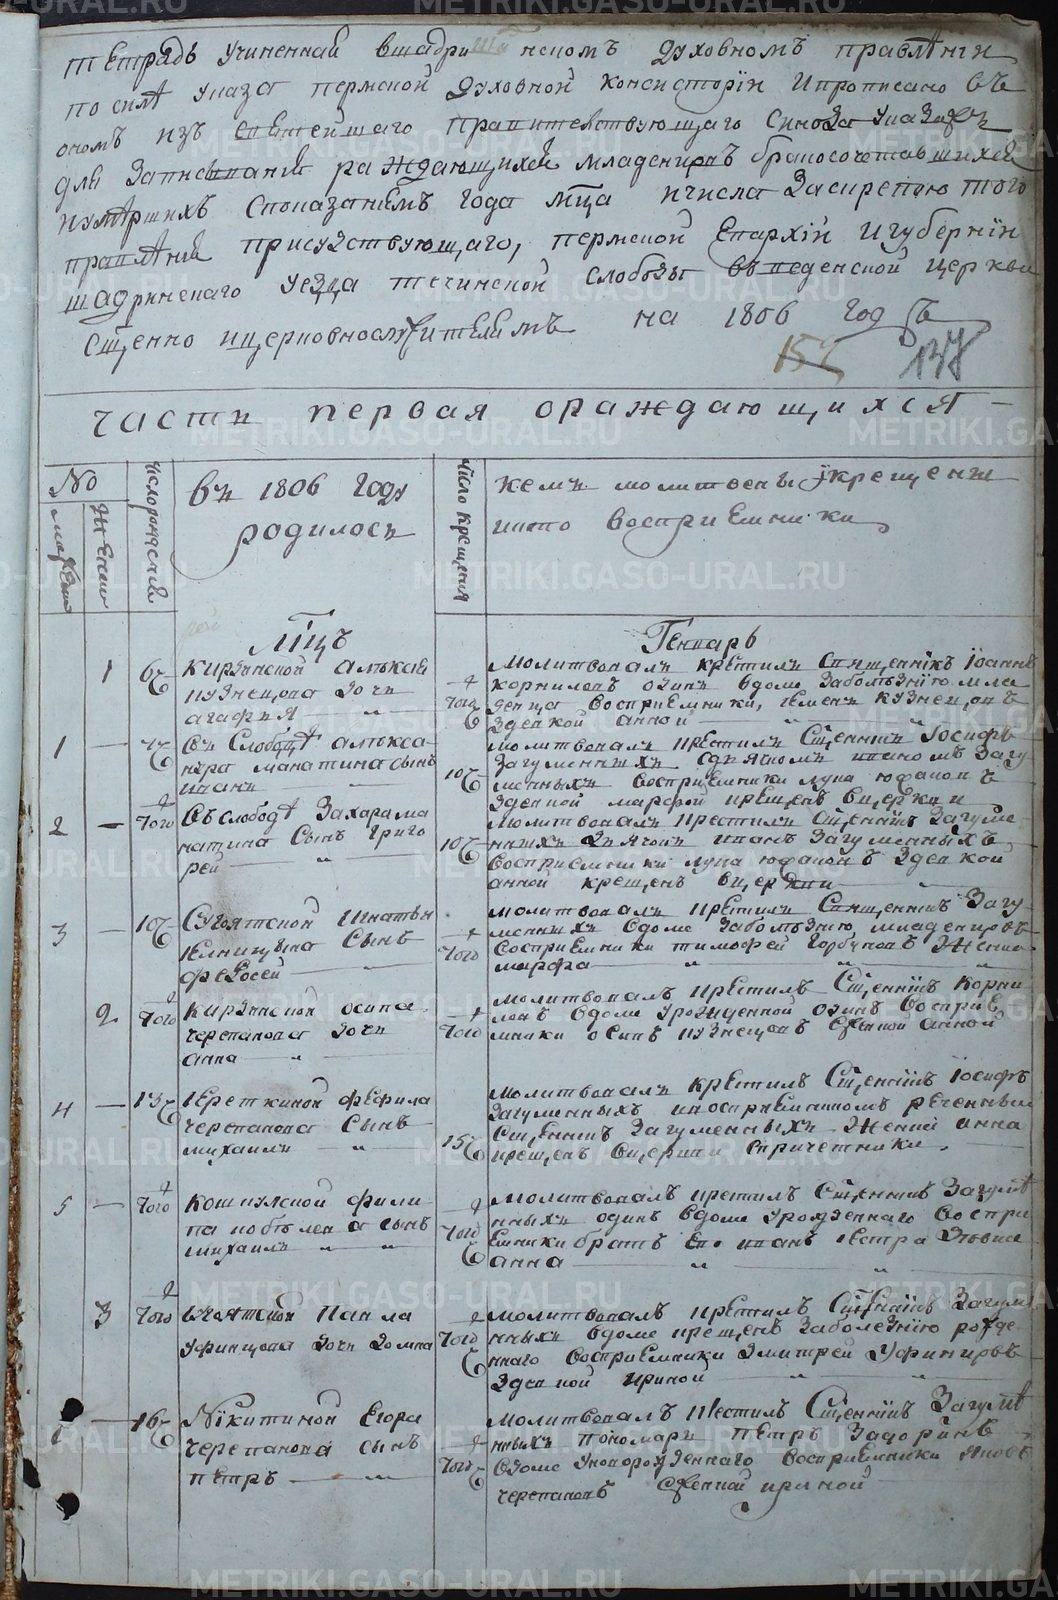 тетрадь учиненная вшадринскомъ духовномъ правлѣнги
по силѣ указа пермской духовной консисторїи Ипрописано въ
ономъ изъ святейшаго правительствующаго синода указахъ
для записыванїя раждающихся младенцовъ бракосочетавшихся
иумѣршихъ споказанїемъ года мца ичисла Заскрепою того
правлѣнїя присудствующаго, пермской Епархїи Игубернїи
шадринскаго уезда теченской слободы въведенской церкви
сщенно ицерковнослужителямъ на 1806 годъ
157 137
части первая ораждающихся
No
мужеск
женск
число рожденїя
въ 1806 году
родилось
число крещения
кемъ молитвенъ икрещенъ
икто восприемники
Мцъ Генварь
1 6г Кирдинской алѣксея
кузнецова дочь
агафья
молитвовалъ крестилъ священникъ Їоаннъ
того корниловъ одинъ вдоме заболѣзнїю мла
денца восприемники, семенъ кузнецовъ
зделкой анной
1 7г въ Слободѣ алѣкса-
ндра манатина сынъ
иванъ
10 молитвовалъ крестилъ Сщенникъ Їосифъ
Загуменныхъ сдьячкомъ иваномъ Загу
менныхъ восприемники лука юфановъ
зделкой марфой крещенъ вцеркви
2 того Въслободѣ Захара ма
натина Сынъ Григо
рей
10 молитвовалъ крестилъ Сщенникъ Загуме
нныхъ дьячокъ иванъ Загуменныхъ
восприемники лука юфановъ зделкой
анной крещенъ вцеркви
3 10 Сугоятской Игнатья
Сынъ
федосей
того молитвовалъ крестилъ священникъ Загу
менныхъ вдоме заболѣзнїю младенцовъ
восприемники тимофей горбуновъ жена
марфа
2 того Кирдинской осипа
черепанова дочь
анна
того молитвовалъ крестилъ Сщенникъ Корни
ловъ вдоме урожденной одинъ восприе
мники осипъ кузнецовъ анной
4 13 черепанова сынъ
михаилъ
15 молитвовалъ крестилъ Сщенникъ Їосифъ
Загуменныхъ реченный
Сщенникъ Загуменныхъ женой анна
крещенъ вцеркви спричетники.
5 того кошкулской фили-
па побѣлева сынъ
михаилъ
того молитвовалъ крестилъ Сщенникъ Загумѣ
нныхъ одинъ вдоме урожденнаго воспри
емники братъ его иванъ петра
анна
3 того Сугоятской Павла
Уфинцова дочь домна
того молитвовалъ крестилъ Сщенникъ Загумѣ
нныхъ вдоме крещенъ заболезнїю рожде
ннаго восприемники Дмитрей Уфинцовъ
зделкой Ириной
16 Никитиной Егора
Черепанова сынъ
петръ
того молитвовалъ крестилъ Сщенникъ Загумѣ
нныхъ пономарь петръ Задоринъ
вдоме новорожденнаго восприемники яковъ
черепановъ ириной
METRIKI.GASO-URAL.RU